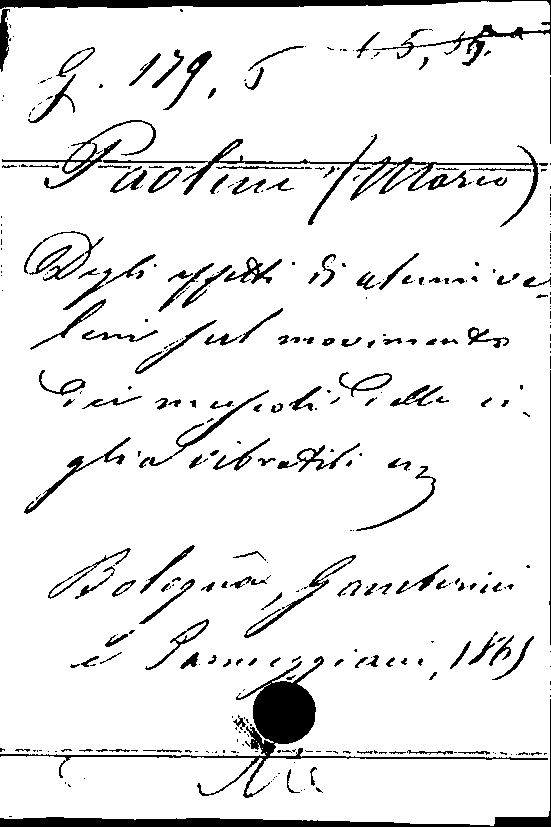 G. 179, 5
Paolini (Mario)
Degli effetti di alcuni ve-
leni sul movimento
dei muscoli, delle ci-
glia vibratili
Bologna, Gamberini
e Parmeggiani, 1865